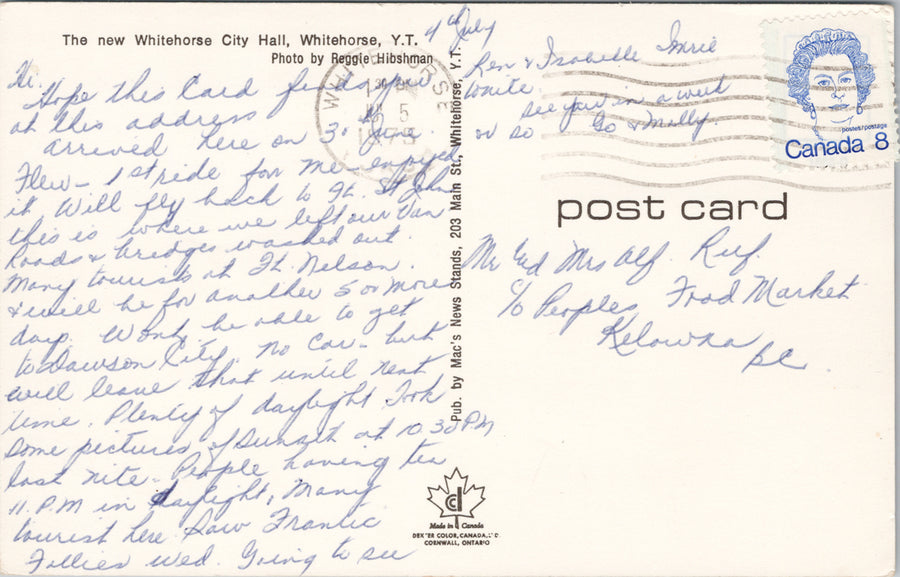 The new Whitehorse City Hall, Whitehorse, Y.T.
Photo by Reggie Hibshman
4th July
Hi.
Hope this Card finds you
at this address
arrived here on 30 June.
Flew - 1st ride for me - enjoyed
it. Will fly back to Ft. St John
this is where we left our Van
Roads & bridges washed out.
Many tourists at Ft. Nelson.
& will be for another 5 or more
days. Won't be able to get
to Dawson City. no Car - but
will leave that until next
time. Plenty of daylight. Took
some pictures of Sunset at 10.30 PM
last nite. People having tea
11 P.M in daylight, Many
tourist here. Saw Frantic
Follies Wed. Going to see
Ken & Isabelle Imrie
Write
see you in a week
or so
& Molly.
Pub. by Mac's News Stands, 203 Main St., Whitehorse, Y.T.
WHITEHORSE
5
postes/postage
Canada 8
post card
Mr And Mrs Alf. Ruf.
c/o Peoples Food Market
Kelowna
BC
cd
Made in Canada
DEXTER COLOR, CANADA, LTD.
CORNWALL, ONTARIO